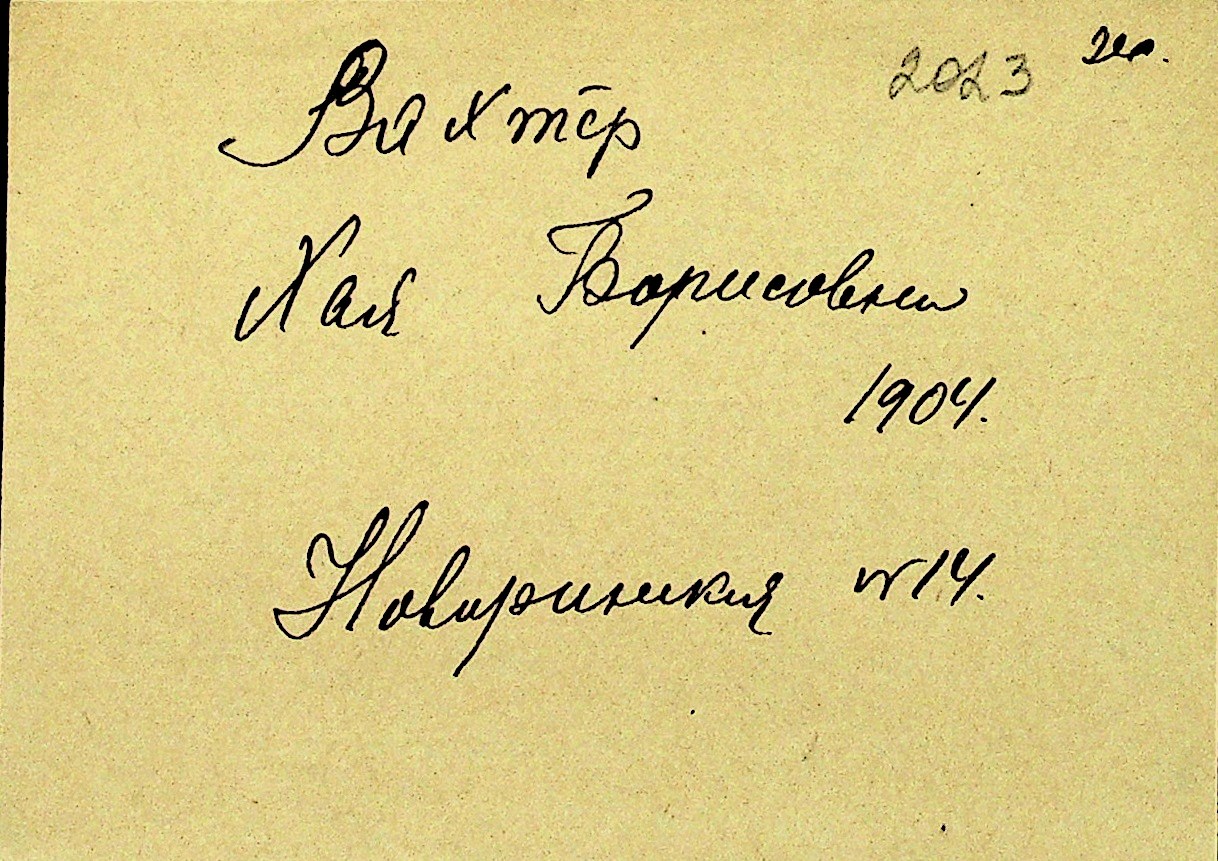 2023
Вахтер
Хая Борисовна
1904.
№14.